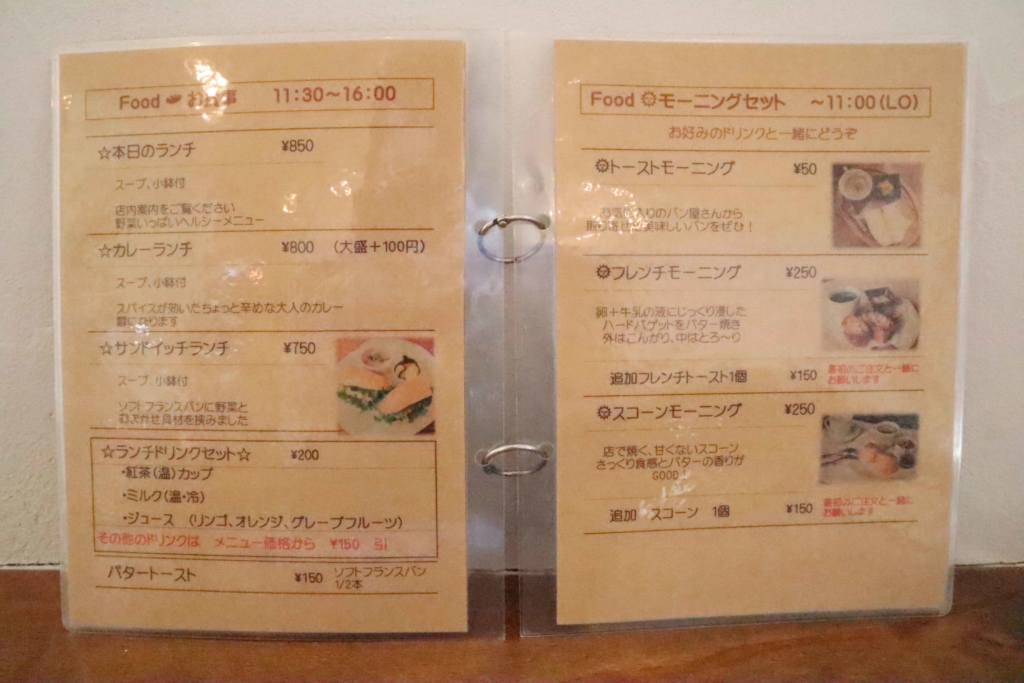 Food お食事 11:30～16:00
☆本日のランチ ¥850
スープ、小鉢付
店内案内をご覧ください
野菜いっぱいヘルシーメニュー
☆カレーランチ ¥800 (大盛＋100円)
スープ、小鉢付
スパイスが効いたちょっと辛めな大人のカレー
になります
☆サンドイッチランチ ¥750
スープ、小鉢付
ソフトフランスパンに野菜と
おまかせ具材を挟みました
☆ランチドリンクセット☆ ¥200
・紅茶(温)カップ
・ミルク(温・冷)
・ジュース (リンゴ、オレンジ、グレープフルーツ)
その他のドリンクは メニュー価格から ¥150 引
バタートースト ¥150 ソフトフランスパン
1/2本
Food モーニングセット ～11:00(LO)
お好みのドリンクと一緒にどうぞ
トーストモーニング ¥50
お気に入りのパン屋さんから
取り寄せた美味しいパンをぜひ！
フレンチモーニング ¥250
卵＋牛乳の液にじっくり浸した
ハードバゲットをバター焼き
外はこんがり、中はとろ～り
追加フレンチトースト1個 ¥150 最初のご注文と一緒に
お願いします
スコーンモーニング ¥250
店で焼く、甘くないスコーン
さっくり食感とバターの香りが
GOOD！
追加 スコーン 1個 ¥150 最初のご注文と一緒に
お願いします